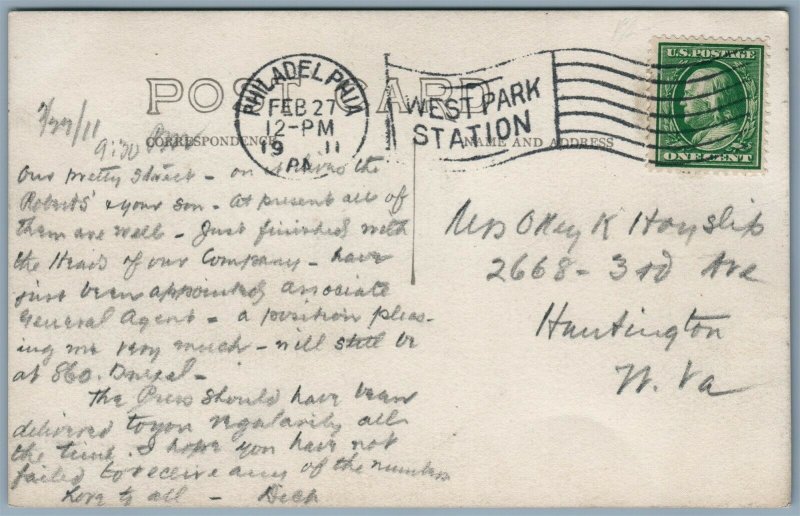 POST CARD
PHILADELPHIA
FEB 27
12-PM
19 11
PA.
WEST PARK
STATION
U.S. POSTAGE
ONE CENT
CORRESPONDENCE
NAME AND ADDRESS
2/27/11
9:30 AM
Our pretty Street - on it lives the
Roberts' & your son - At present all of
them are well - Just finished with
the Heads of our Company - have
just been appointed Associate
General Agent - a position pleas-
ing me very much - will still be
at 860. Drexel -
The Press should have been
delivered to you regularly all
the time. I hope you have not
failed to receive any of the numbers
Love to all - Dick
Mrs Okey K Hayslip
2668 - 3rd Ave
Huntington
W. Va